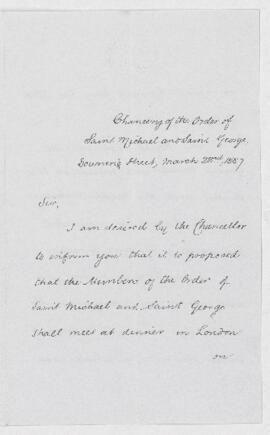 Chancery of the Order of
Saint Michael and Saint George,
Downing Street, March 22nd, 1887
Sir,
I am desired by the Chancellor
to inform you that it is proposed
that the Members of the Order of
Saint Michael and Saint George
shall meet at dinner in London
on